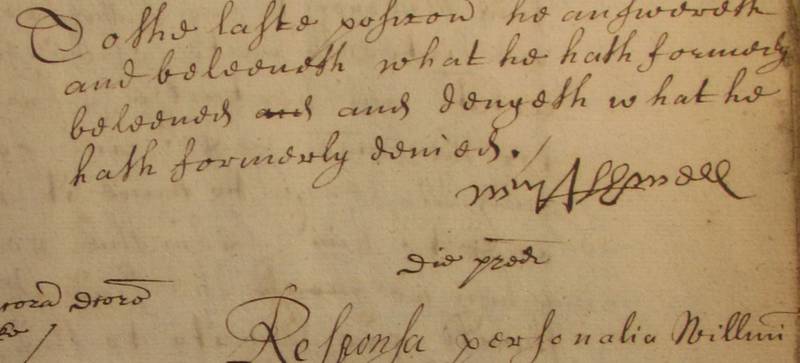 To the laste posicon he answereth
and beleeueth what he hath formerly
beleeued and and denyeth what he
hath formerly denied./
Wm
die pred
cora docore
Responsa personalia Willmi